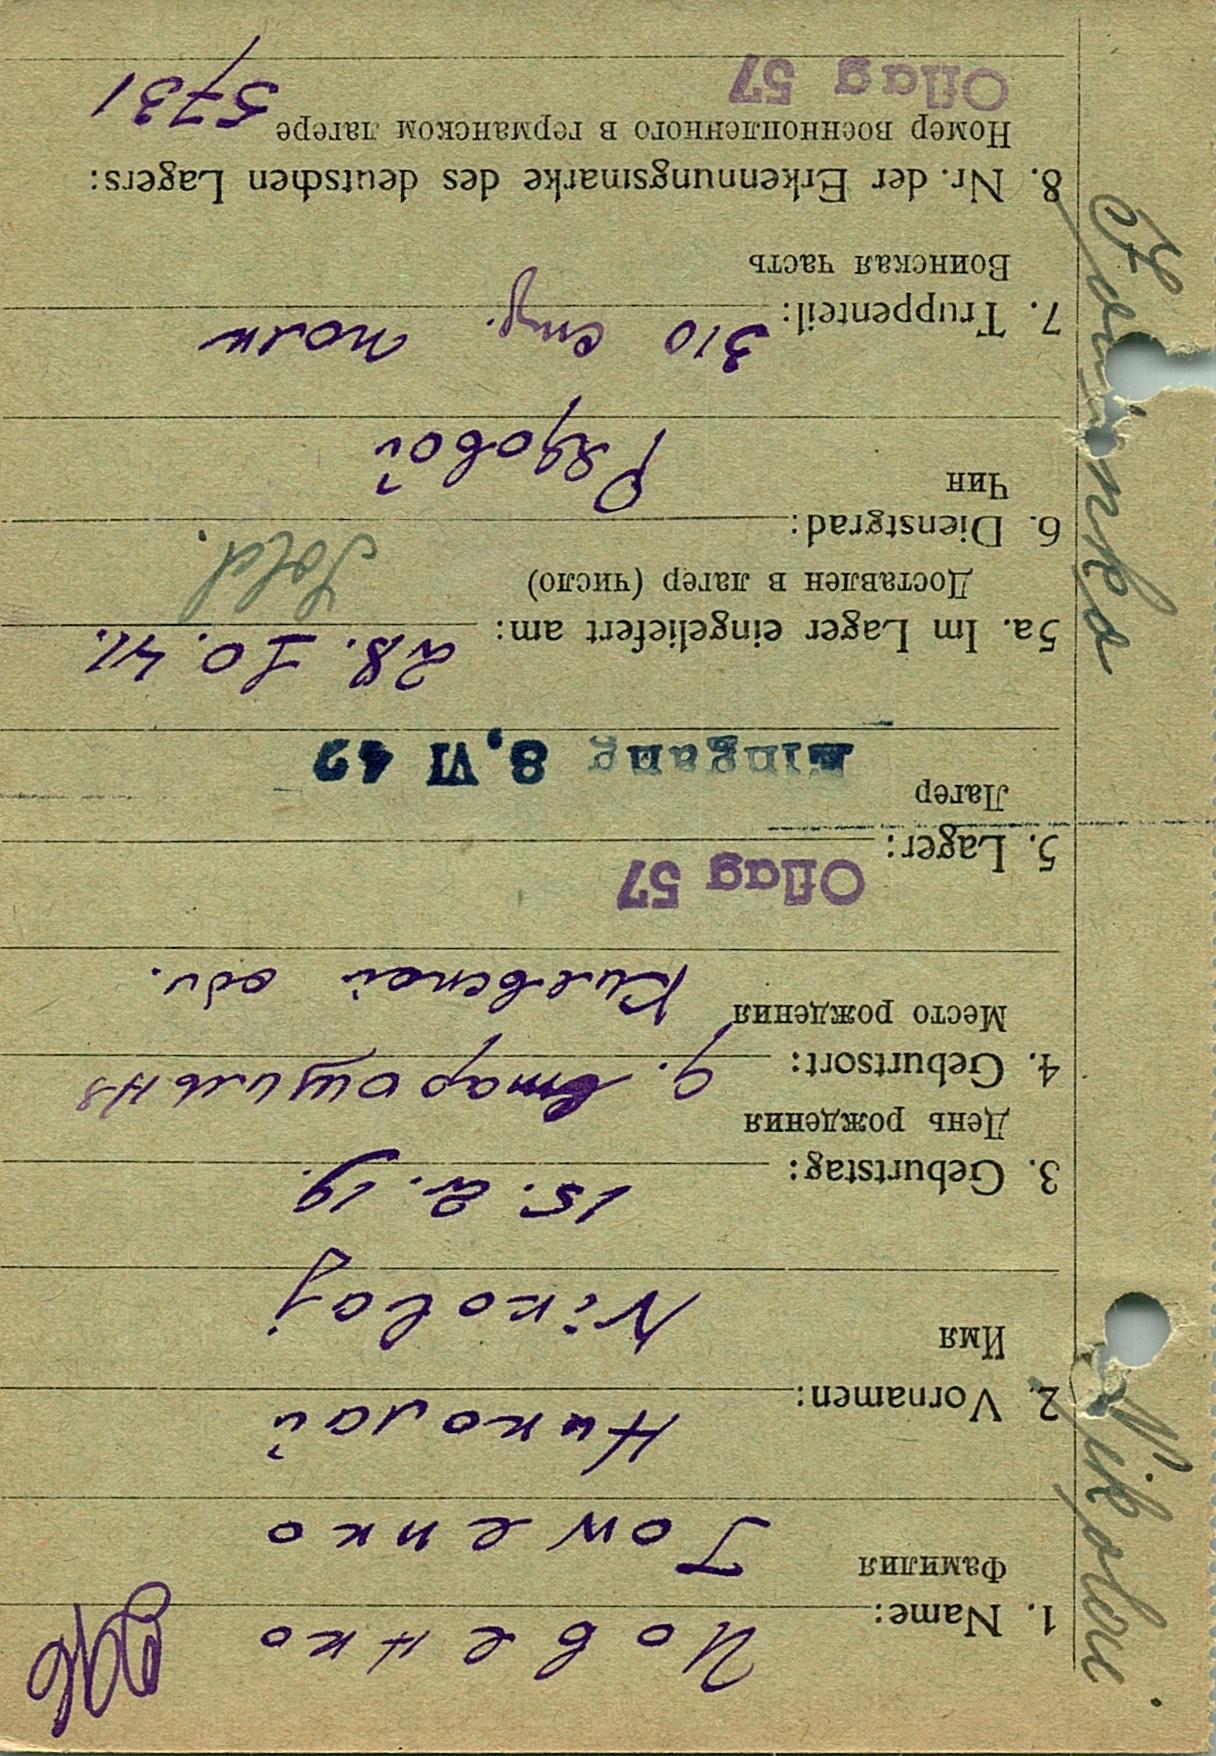 1. Name:
Иовенко
Фамилия
Jowenko
2. Vornamen:
Николай
Имя
Nikolaj
3. Geburtstag:
15. 2. 19.
День рождения
4. Geburtsort:
д.
Место рождения
Киевской обл.
Oflag 57
5. Lager:
Лагер
Eingang 8, VI 42
5a. Im Lager eingeliefert am:
28. 10. 41.
Доставлен в лагер (число)
Sold.
6. Dienstgrad:
Чин
Рядовой
7. Truppenteil:
310 стр. полк
Воинская часть
8. Nr. der Erkennungsmarke des deutschen Lagers:
Номер военнопленного в германском лагере
5731
Oflag 57
Nikolai